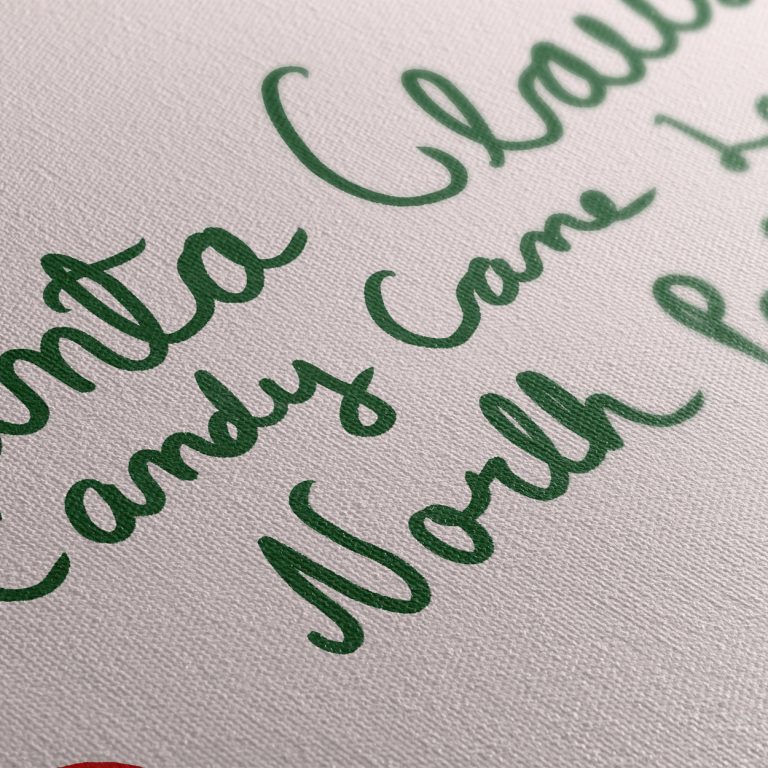 Santa Claus
Candy Cane
North